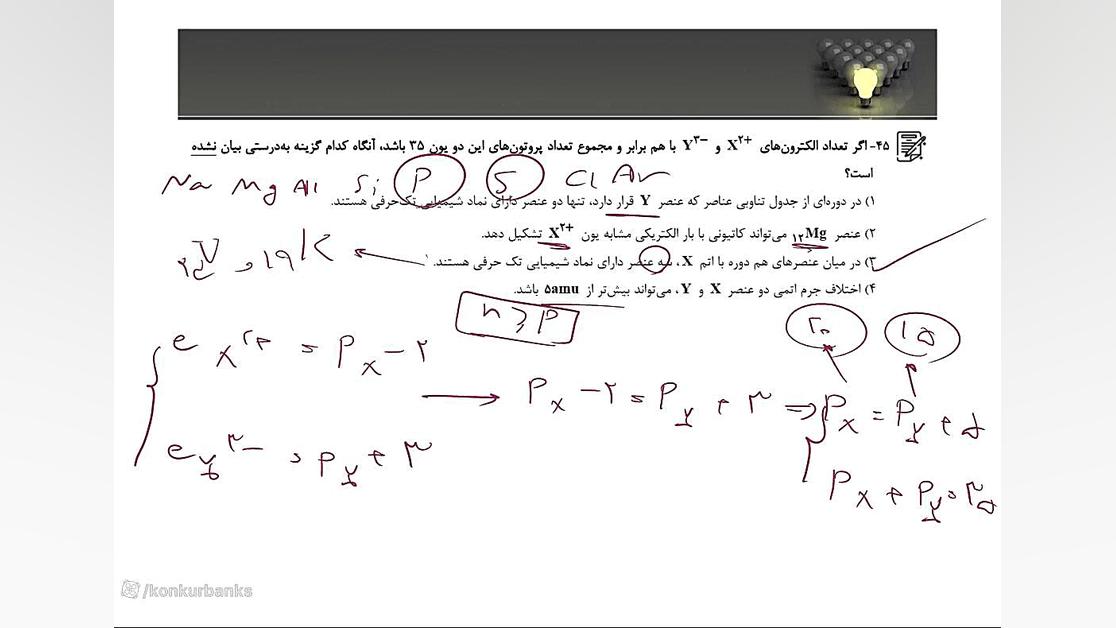 ۴۵- اگر تعداد الکترون‌های X²⁺ و Y³⁻ با هم برابر و مجموع تعداد پروتون‌های این دو یون ۳۵ باشد، آنگاه کدام گزینه به‌درستی بیان نشده
است؟
Na Mg Al Si P S Cl Ar
۱) در دوره‌ای از جدول تناوبی عناصر که عنصر Y قرار دارد، تنها دو عنصر دارای نماد شیمیایی تک‌حرفی هستند.
۲) عنصر ₁₂Mg می‌تواند کاتیونی با بار الکتریکی مشابه یون X²⁺ تشکیل دهد.
۳) در میان عنصرهای هم دوره با اتم X، سه عنصر دارای نماد شیمیایی تک حرفی هستند.
۲۳V و ۱۹K
۴) اختلاف جرم اتمی دو عنصر X و Y، می‌تواند بیش‌تر از ۵amu باشد.
n ⩾ P
۲۰ ۱۵
e X²⁺ = P X − ۲
P X − ۲ = P Y + ۳ ⇒ P X = P Y + ۵
e Y³⁻ = P Y + ۳
P X + P Y = ۳۵
/konkurbanks